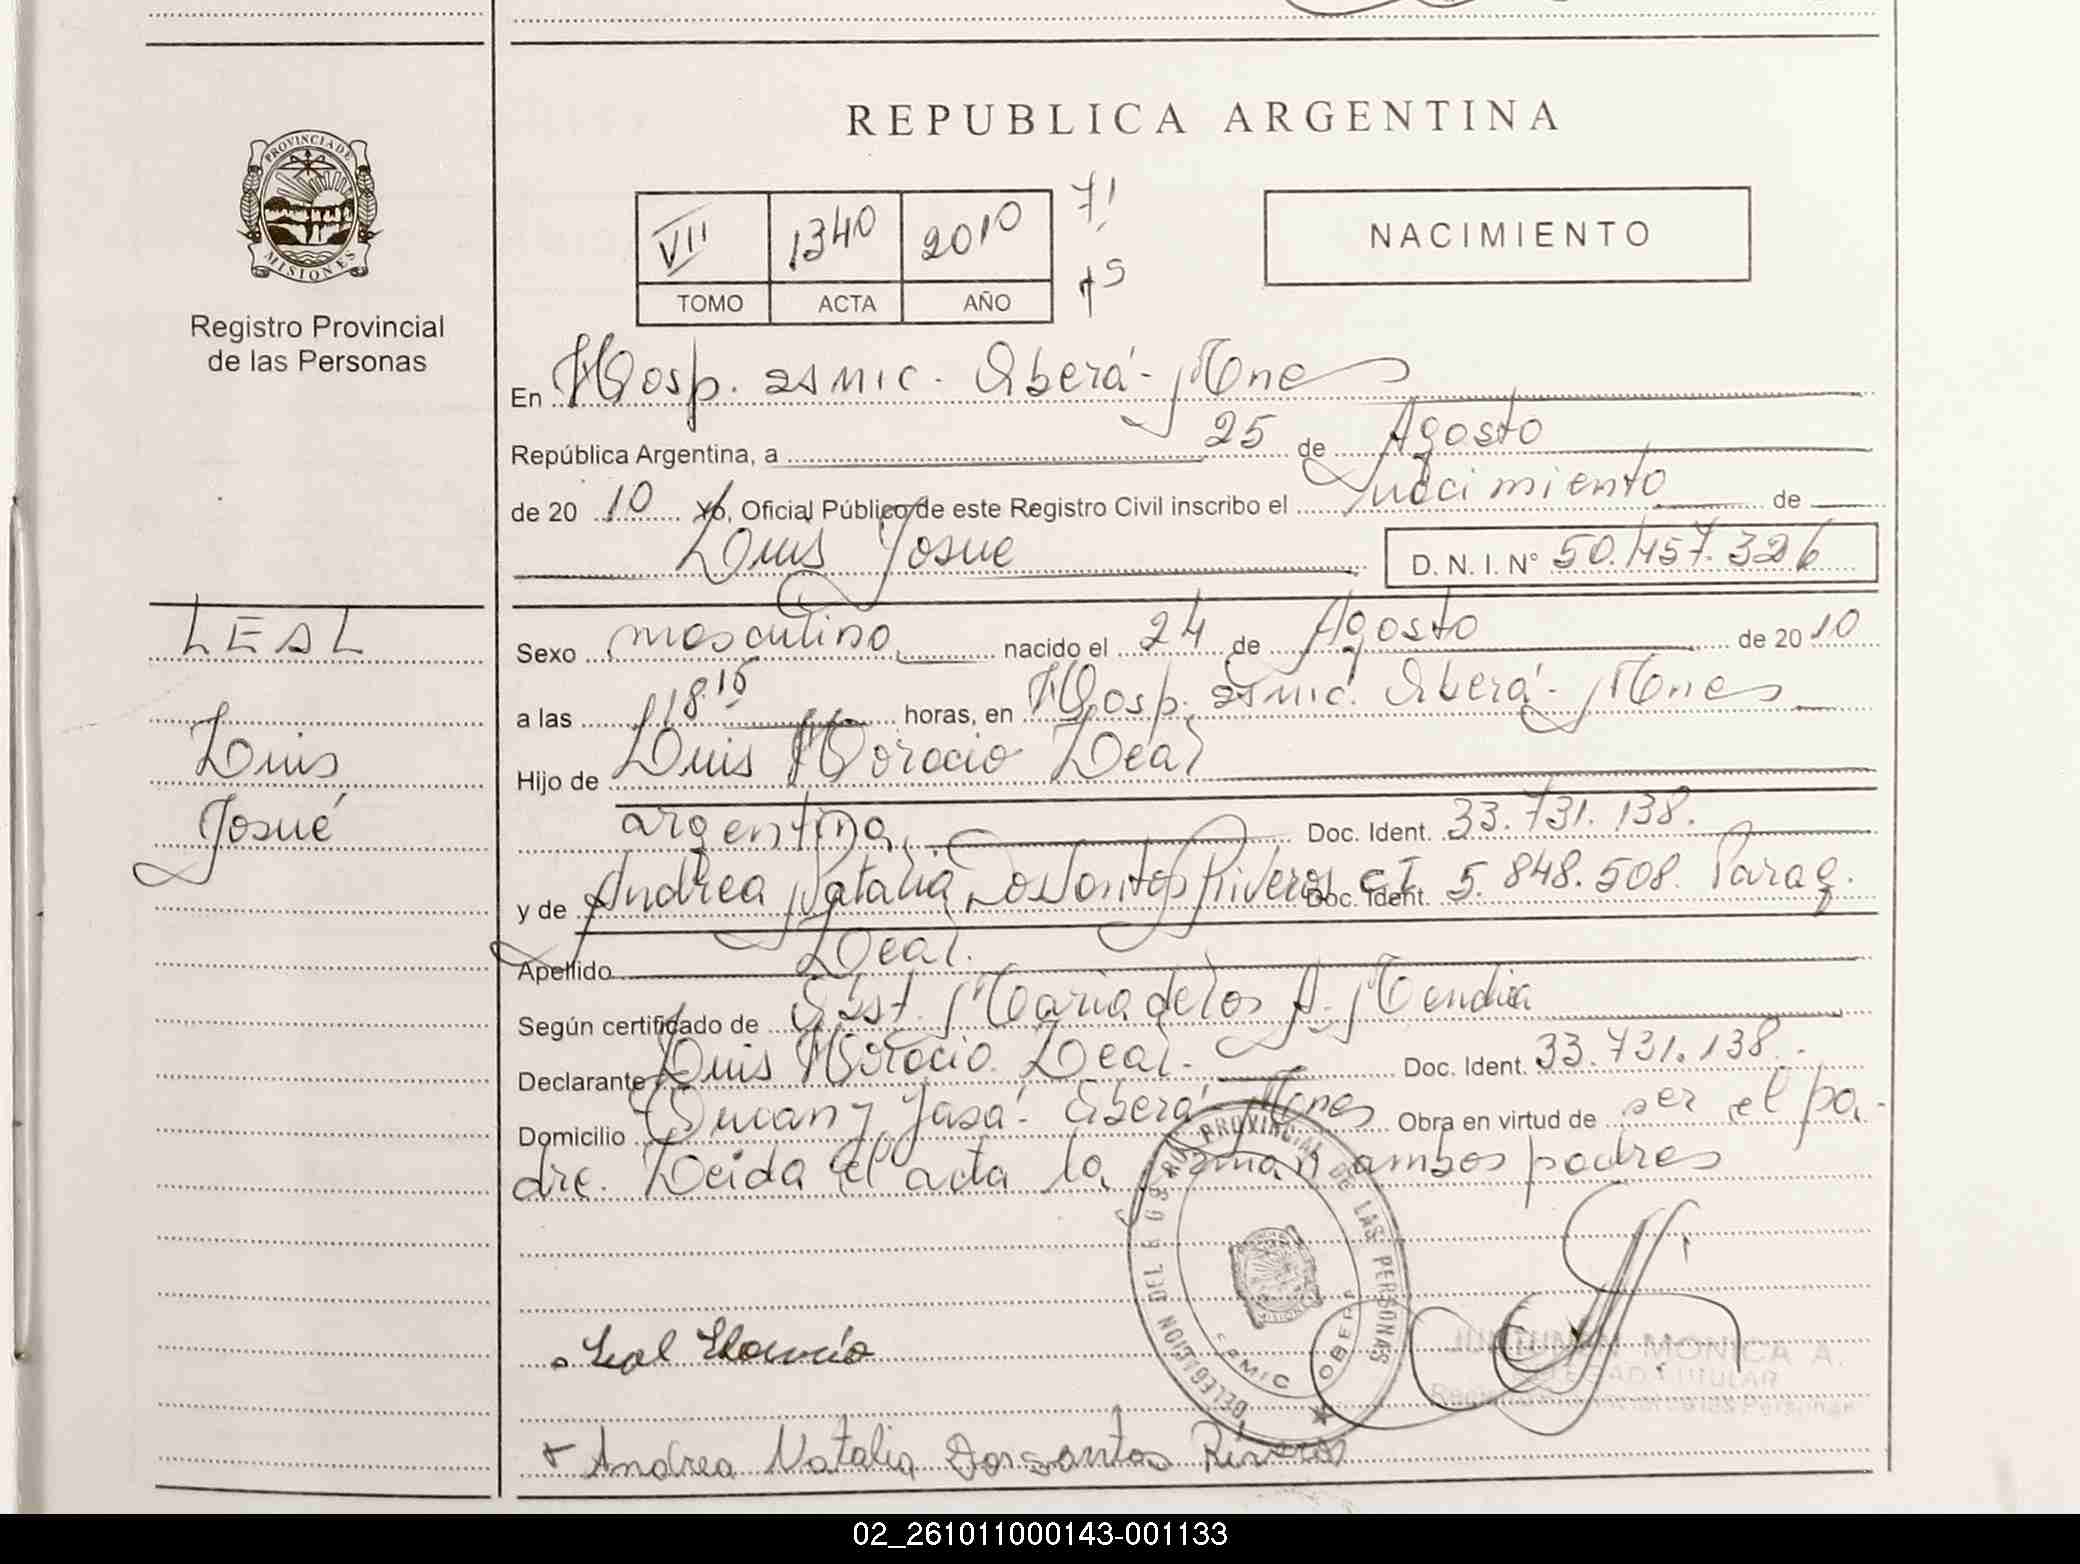 REPUBLICA ARGENTINA
PROVINCIA DE
MISIONES
Registro Provincial
de las Personas
VII 1340 2010
TOMO ACTA AÑO
NACIMIENTO
En Hosp. Oberá - Mnes
República Argentina, a 25 de Agosto
de 20 10 Yo, Oficial Público de este Registro Civil inscribo el Nacimiento de
Luis Josue D. N. I. N° 50.457.326
LEAL
Luis
Josué
Sexo masculino nacido el 24 de Agosto de 20 10
a las 18.15 horas, en Hosp. Oberá - Mnes
Hijo de Luis Horacio Leal
argentino Doc. Ident. 33.731.138.
y de Andrea Natalia Dos Santos Riveros C I Doc. Ident. 5.848.508. Parag.
Apellido Leal.
Según certificado de Obst. Maria de los A. Mendieta
Declarante Luis Horacio Leal - Doc. Ident. 33.731.138.
Domicilio Oberá - Mnes Obra en virtud de ser el pa-
dre. Leida el acta la firman ambos padres
DELEGACION DEL REGISTRO PROVINCIAL DE LAS PERSONAS
SAMIC OBERA
Leal Horacio
MONICA A.
DELEGADA TITULAR
Andrea Natalia Dossantos Riveros
02_261011000143-001133